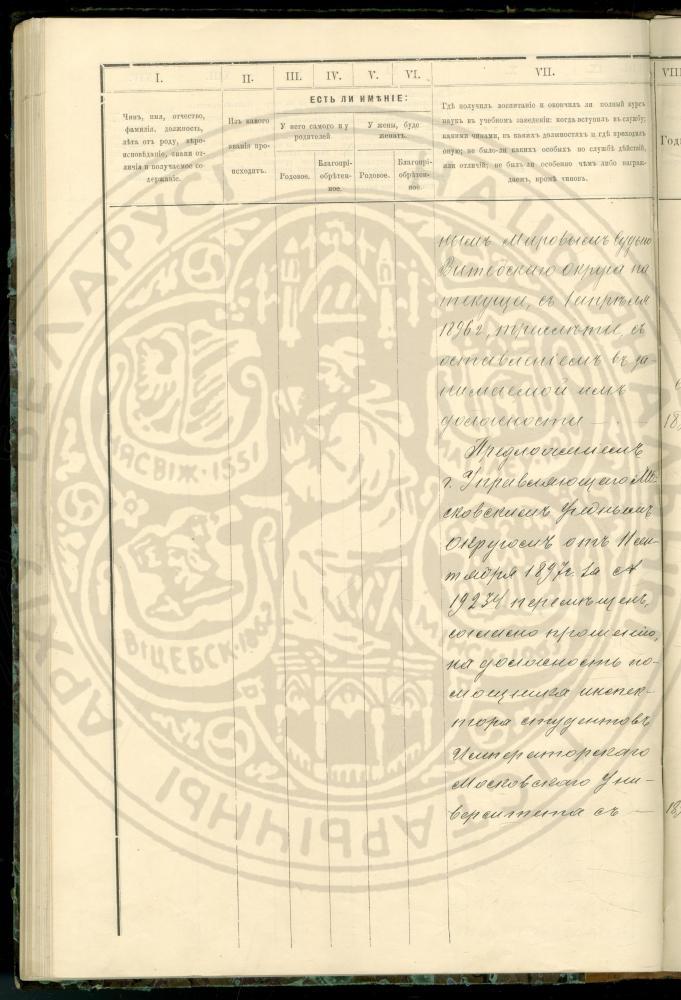 I. II. III. IV. V. VI. VII. VIII
ЕСТЬ ЛИ ИМѢНІЕ:
Чинъ, имя, отчество,
фамилія, должность,
лѣта отъ роду, вѣро-
исповѣданіе, знаки от-
личія и получаемое со-
держаніе.
Изъ какого
званія про-
исходитъ.
У него самого и у
родителей
У жены, буде
женатъ.
Родовое.
Благопрі-
обрѣтен-
ное.
Родовое.
Благопрі-
обрѣтен-
ное.
Гдѣ получилъ воспитаніе и окончилъ ли полный курсъ
наукъ въ учебномъ заведеніи: когда вступилъ въ службу;
какими чинами, въ какихъ должностяхъ и гдѣ проходилъ
оную; не было-ли какихъ особыхъ по службѣ дѣйствій,
или отличій; не былъ-ли особенно чѣмъ либо награж-
даемъ, кромѣ чиновъ.
Год
нымъ Мировымъ Судьею
Витебскаго Округа на
текущее, съ 1 апрѣля
1896 г., трехлѣтіе, съ
оставленіемъ въ за-
нимаемой имъ
должности —
18
Предложеніемъ
г. Управляющаго Мо-
сковскимъ Учебнымъ
Округомъ отъ 11 сен-
тября 1897 г. за №
19234 перемѣщенъ,
согласно прошенію,
на должность по-
мощника инспек-
тора студентовъ
Императорскаго
Московскаго Уни-
верситета съ —
18
НЯСВІЖ·1551
ВІЦЕБСК